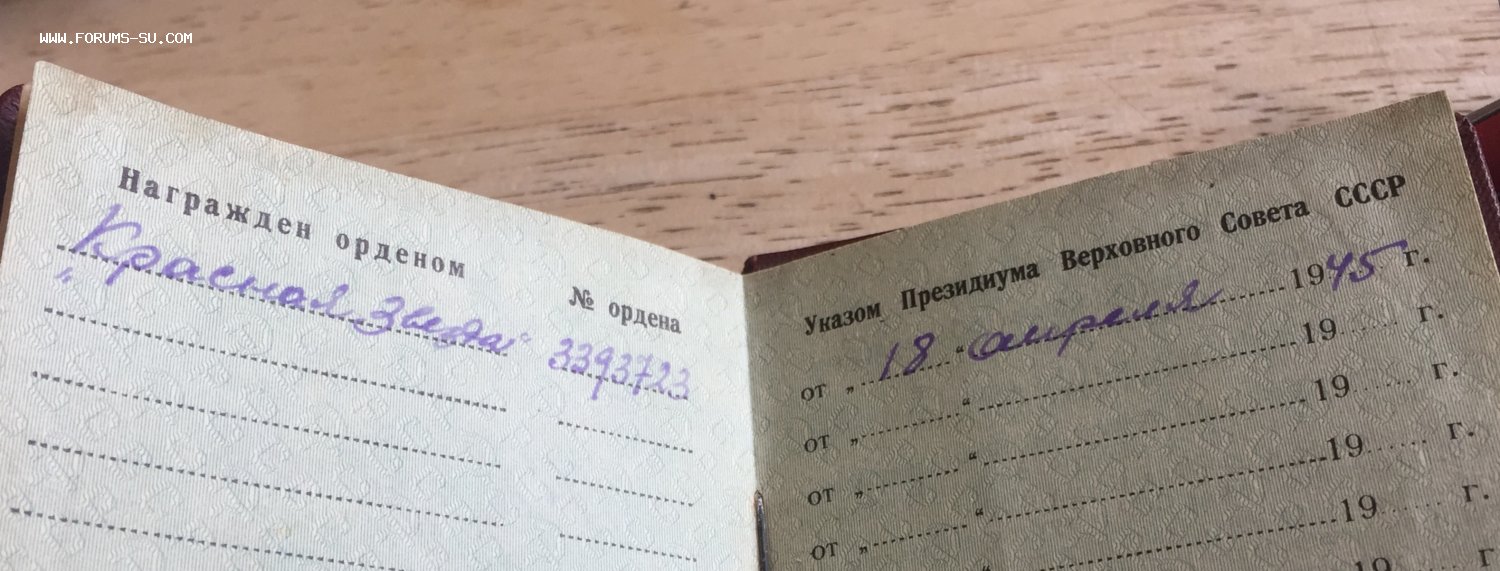 WWW.FORUMS-SU.COM
Награжден орденом
№ ордена
„Красная Звезда“ 3393723
Указом Президиума Верховного Совета СССР
от „ 18 “ апреля 1945 г.
от „ “ 19 г.
от „ “ 19 г.
от „ “ 19 г.
от „ “ 19 г.
19 г.